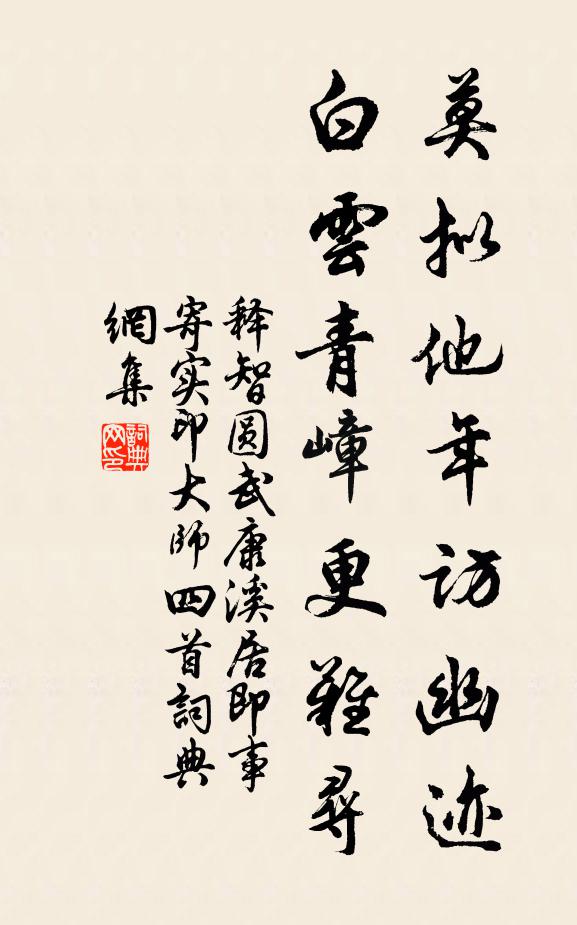 莫拟他年访幽迹
白雲青嶂更難尋
释智圆武康溪居即事
寄实印大师四首詞典
網集
詞典
网印